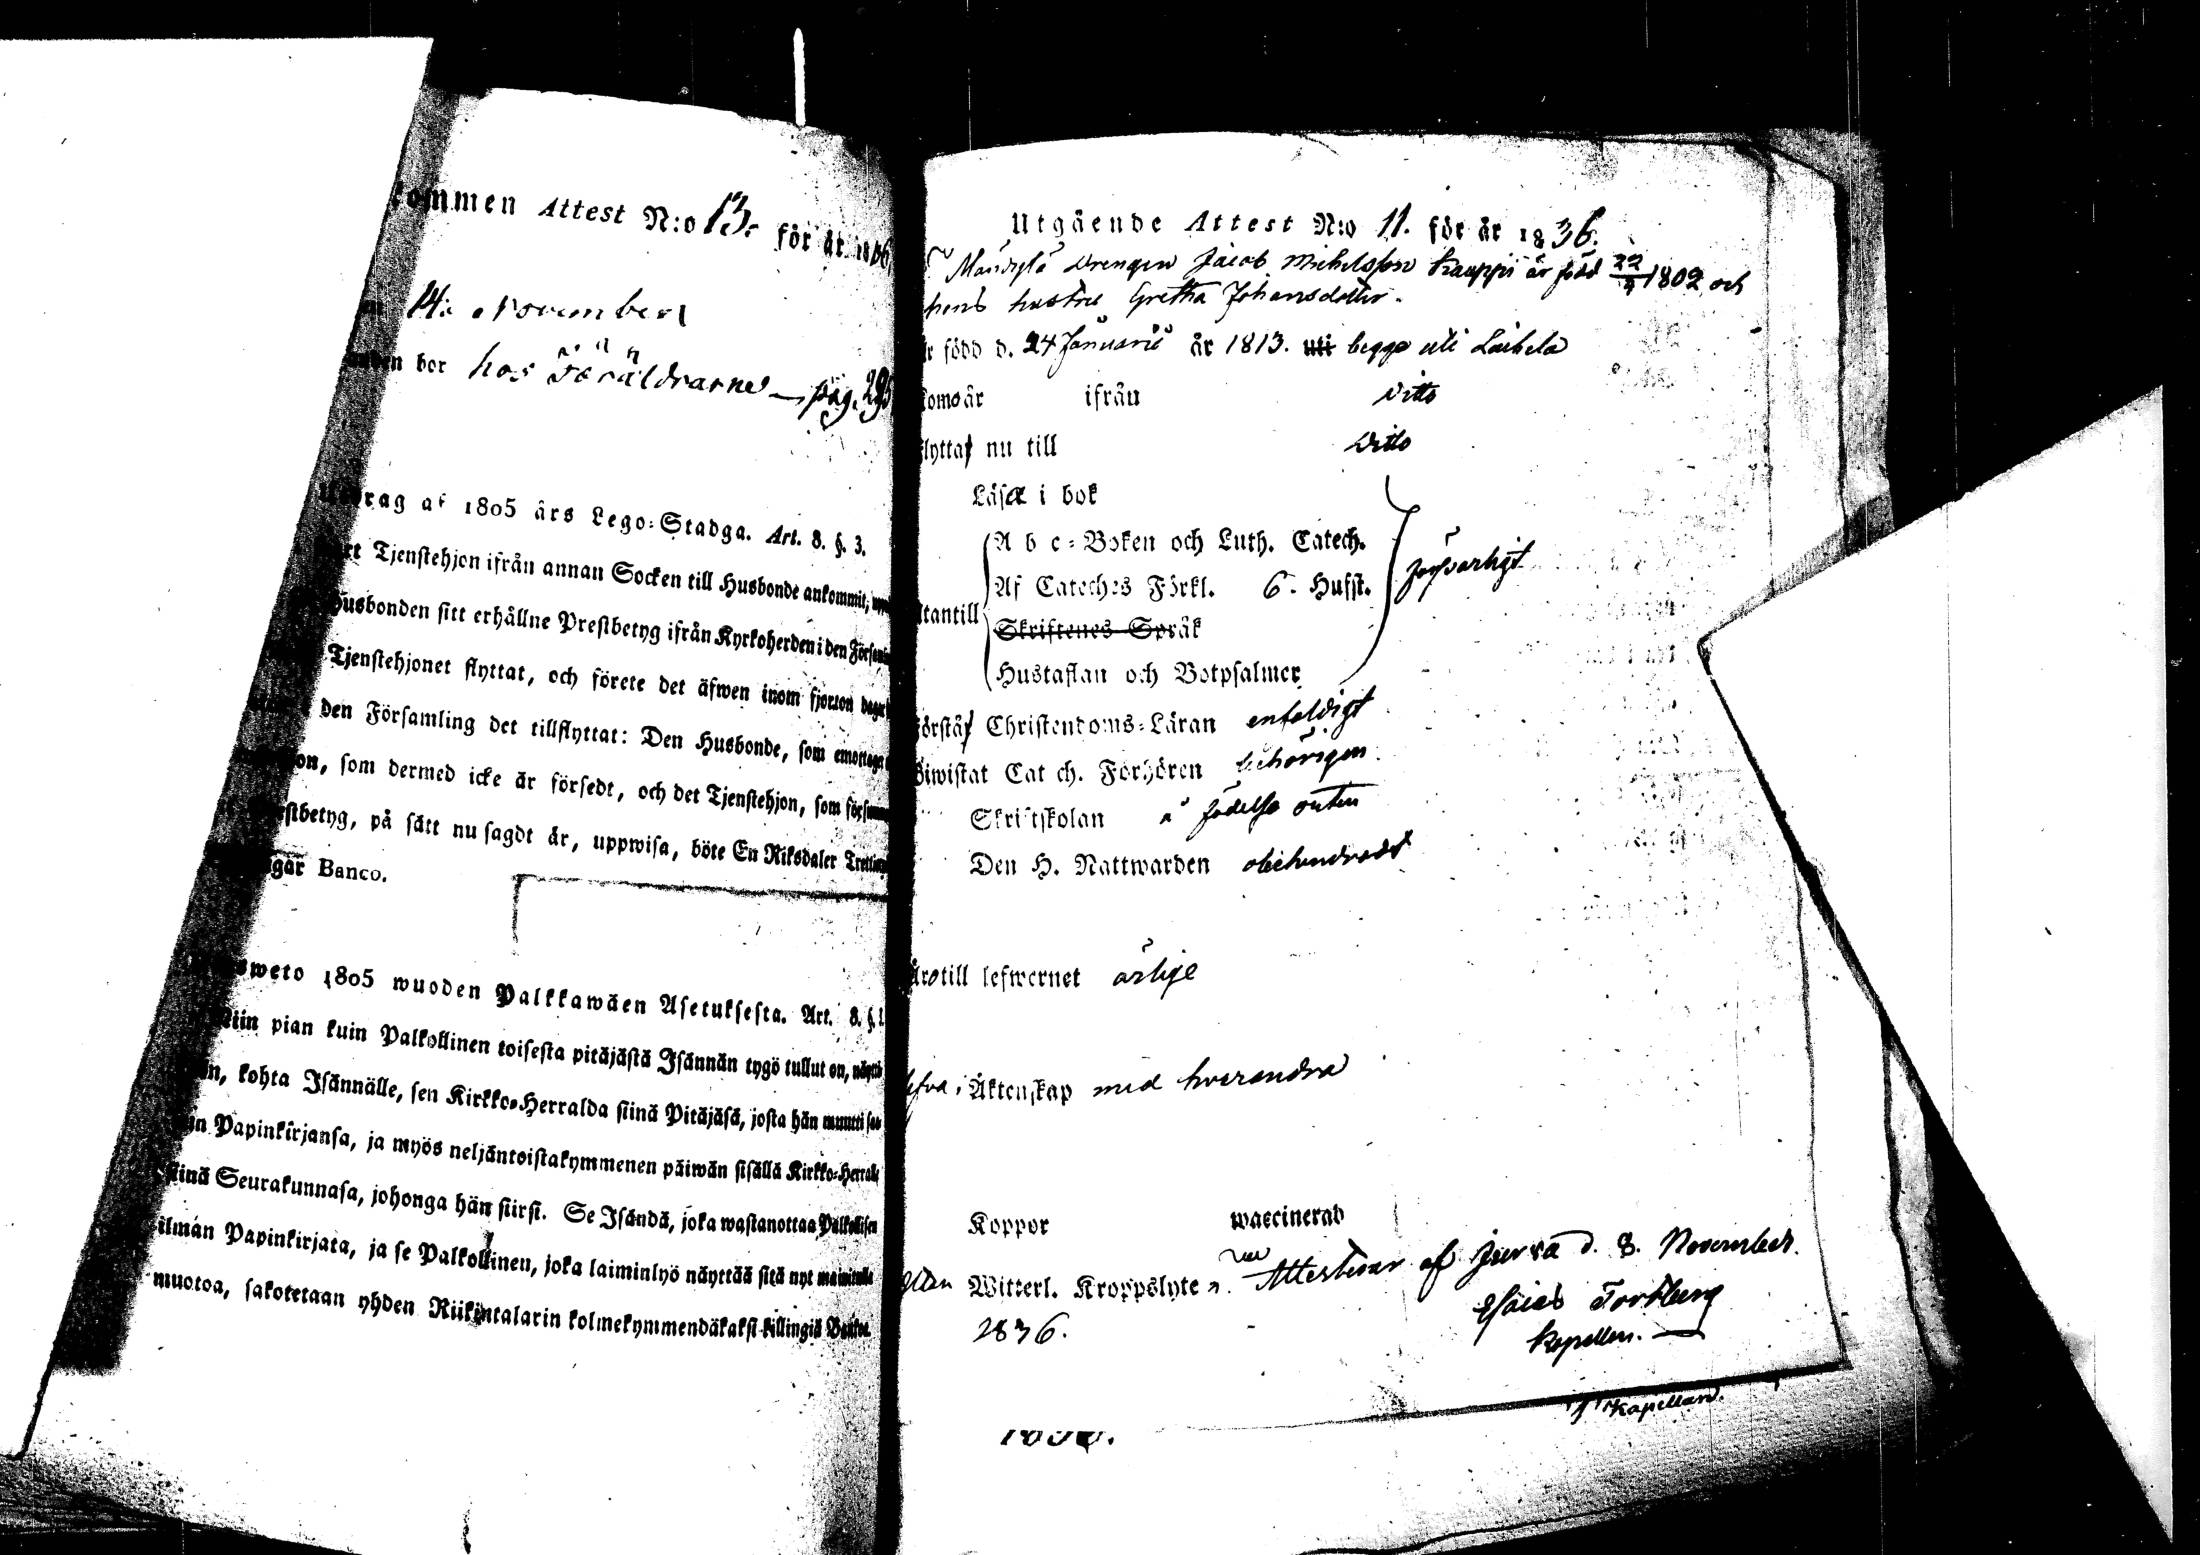 kommen Attest N:o 13. för år 1836
14: November
bor hos Föräldrarne — pag. 295
Utdrag af 1805 års Lego-Stadga. Art. 8. §. 3.
Tjenstehjon ifrån annan Socken till Husbonde ankommit,
Husbonden sitt erhållne Prestbetyg ifrån Kyrkoherden i den
Tjenstehjonet flyttat, och förete det äfwen inom fjorton dagar
den Församling det tillflyttat: Den Husbonde, som
som dermed icke är försedt, och det Tjenstehjon, som
på sätt nu sagdt är, uppwisa, böte En Riksdaler
Banco.
1805 wuoden Palkkawäen Asetuksesta. Art. 8. §.
Niin pian kuin Palkollinen toisesta pitäjästä Isännän tygö tullut on,
kohta Isännälle, sen Kirkko-Herralda siinä Pitäjäsä, josta hän muutti
Papinkirjansa, ja myös neljäntoistakymmenen päiwän sisällä Kirkko-Herralle
siinä Seurakunnasa, johonga hän siirsi. Se Isändä, joka wastanottaa Palkollisen
ilman Papinkirjata, ja se Palkollinen, joka laiminlyö näyttää sitä nyt mainitulla
muotoa, sakotetaan yhden Riikintalarin kolmekymmendäkaksi killingiä Bankos.
Utgående Attest N:o 11. för år 1836.
Drengen Jacob Michelsson Kauppi är född 22/9 1802 och
hans hustru Gretha Johansdotter.
är född d. 24 Januarii år 1813. uti begge uti Laihela
ifrån ditto
flyttar nu till ditto
Läsa i bok
A b c-Boken och Luth. Catech.
Af Cateches Förkl. 6. Hufst. försvarligt
Utantill
Skriftenes Språk
Hustaflan och Botpsalmer
Förstår Christendoms-Läran enfaldigt
Biwistat Catech. Förhören behörigen.
Skriftskolan å födelse orten
Den H. Nattwarden obehindradt
Äro till lefwernet ärlige
lefva i Äktenskap med hvarandra
Koppor waccinerad
utan Witterl. Kroppslyte Attesterar af Jurva d. 8. November.
1836. Esaias Forsberg
Kapellan.
Kapellan.
1836.